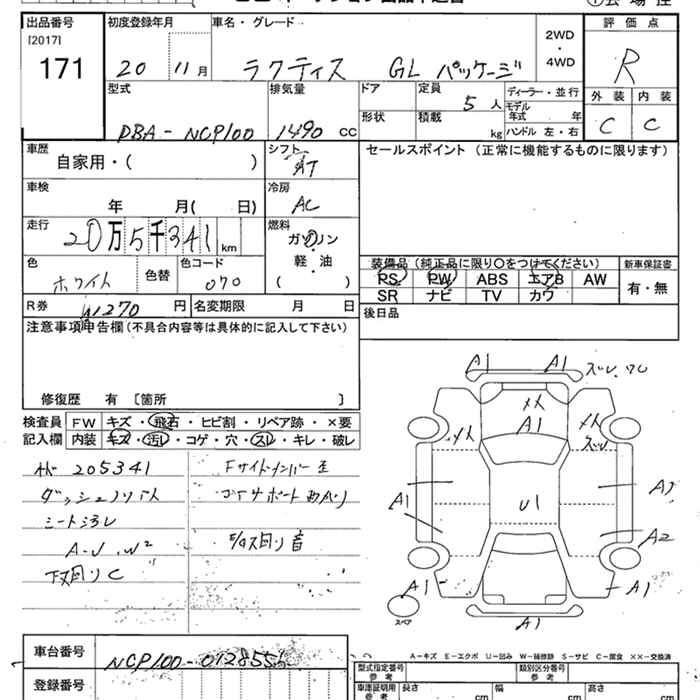 出品番号
[2017]
171
初度登録年月
20 11月
車名・グレード
ラクティス GL パッケージ
2WD
・
4WD
評価点
R
外装 内装
C C
型式
DBA-NCP100
排気量
1490 CC
ドア
形状
定員
5人
積載
kg
ディーラー・並行
モデル
年式 年
ハンドル 左・右
車歴
自家用・( )
シフト
AT
セールスポイント (正常に機能するものに限ります)
車検
年 月( 日)
冷房
AC
走行
20万5千341km
燃料
ガソリン
軽・油
( )
色
ホワイト
色替
色コード
070
装備品(純正品に限り○をつけてください)
PS PW ABS エアB AW
SR ナビ TV カワ
新車保証書
有・無
R券
¥11270円
名変期限 月 日
後日品
注意事項申告欄(不具合内容等は具体的に記入して下さい)
修復歴 有 〔箇所 〕
検査員
記入欄
FW キズ・飛石・ヒビ割・リペア跡・×要
内装 キズ・汚レ・コゲ・穴・スレ・キレ・破レ
205341
シート汚レ
A-U.W2
下回りC
Fサイドメンバー
コアサポート
音
A1 A1
メハ
A1
A1
U1
A1
A2
A1
A1
A1
スペア
A−キズ E−エクボ U−凹み W−補修跡 S−サビ C−腐食 ××−交換済
車台番号
NCP100-0128555
登録番号
型式指定番号
参考
類別区分番号
参考
車庫証明用
参考
長さ cm
幅 cm
高さ cm